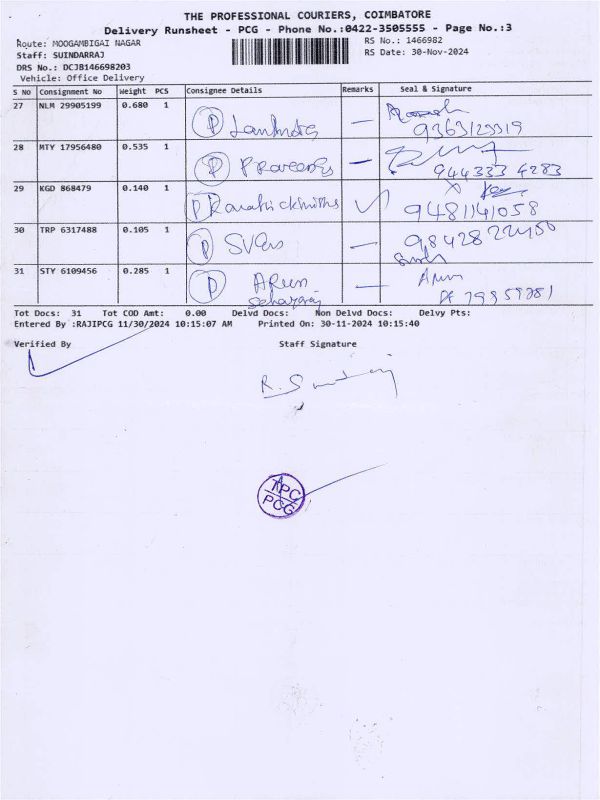 THE PROFESSIONAL COURIERS, COIMBATORE
Delivery Runsheet - PCG - Phone No.:0422-3505555 - Page No.:3
Route: MOOGAMBIGAI NAGAR RS No.: 1466982
Staff: SUINDARRAJ RS Date: 30-Nov-2024
DRS No.: DCJB146698203
Vehicle: Office Delivery
S No Consignment No Weight PCS Consignee Details Remarks Seal & Signature
27 NLM 29905199 0.680 1 P
28 MTY 17956480 0.535 1 P 944333 4283
29 KGD 868479 0.140 1 P 9481141058
30 TRP 6317488 0.105 1 P
31 STY 6109456 0.285 1 P Arun Arun
Tot Docs: 31 Tot COD Amt: 0.00 Delvd Docs: Non Delvd Docs: Delvy Pts:
Entered By :RAJIPCG 11/30/2024 10:15:07 AM Printed On: 30-11-2024 10:15:40
Verified By Staff Signature
TPC
PCG